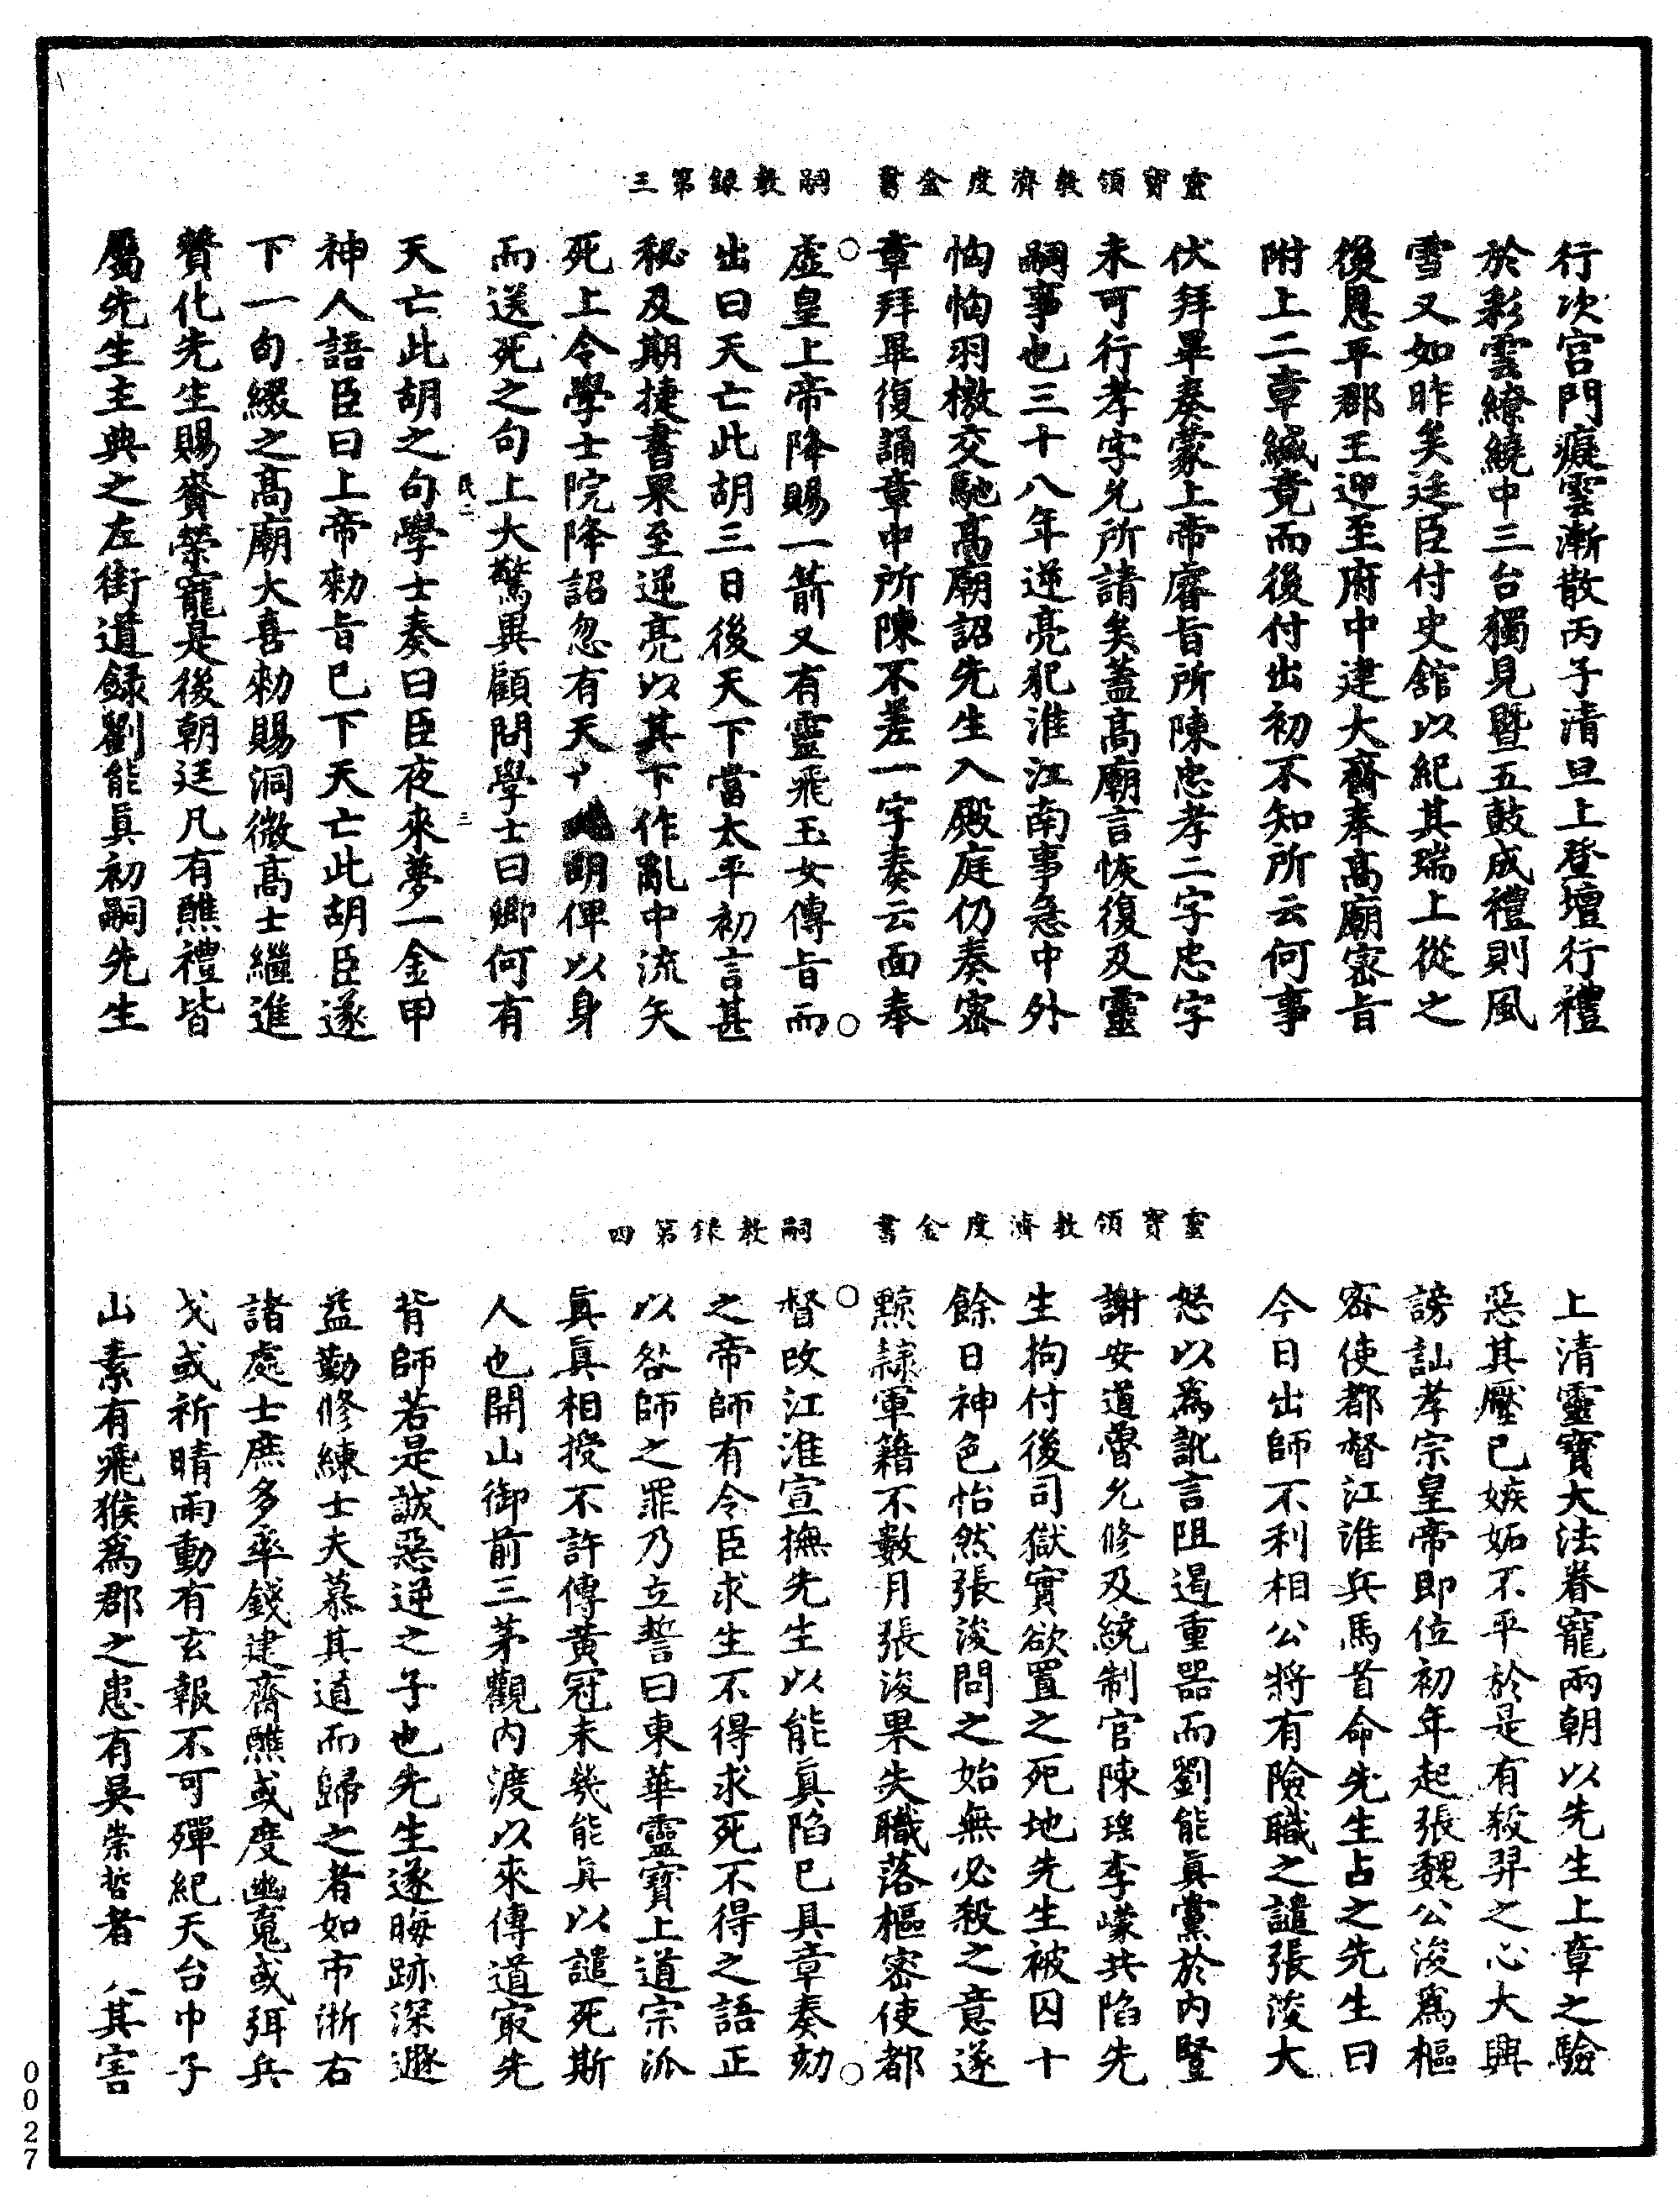 靈寶領教濟度金書　嗣教録第三
行次宫門癡雲漸散丙子清旦上登壇行禮
於彩雲繚繞中三台獨見暨五鼓成禮則風
雪又如昨矣廷臣付史舘以紀其瑞上從之
後恩平郡王迎至府中建大齋奉髙廟宻旨
附上二章緘竟而後付出初不知所云何事
伏拜畢奏蒙上帝睿旨所陳忠孝二字忠字
未可行孝字允所請矣蓋髙廟言恢復及靈
嗣事也三十八年逆亮犯淮江南事急中外
恟恟羽檄交馳髙廟詔先生入殿庭仍奏宻
章拜畢復誦章中所陳不差一字奏云面奉
虚皇上帝降賜一箭又有靈飛玉女傳旨而
出曰天亡此胡三日後天下當太平初言甚
秘及期捷書果至逆亮以其下作亂中流矢
死上令學士院降詔忽有天亡此胡俾以身
而送死之句上大驚異顧問學士曰卿何有
民二　三
天亡此胡之句學士奏曰臣夜來夢一金甲
神人語臣曰上帝勑旨已下天亡此胡臣遂
下一句綴之髙廟大喜勑賜洞微髙士繼進
賛化先生賜賚榮寵是後朝廷凡有醮禮皆
屬先生主典之左街道録劉能眞初嗣先生
靈寶領教濟度金書　嗣教録第四
上清靈寶大法眷寵兩朝以先生上章之驗
惡其壓已嫉妬不平於是有殺羿之心大興
謗訕孝宗皇帝即位初年起張魏公浚爲樞
宻使都督江淮兵馬首命先生占之先生曰
今日出師不利相公將有險職之譴張浚大
怒以爲訛言阻遏重噐而劉能眞黨於内豎
謝安道曾允修及統制官陳瑶李㠓共陷先
生拘付後司獄實欲置之死地先生被囚十
餘日神色怡然張浚問之始無必殺之意遂
黥隷軍籍不數月張浚果失職落樞密使都
督改江淮宣撫先生以能眞陷已具章奏劾
之帝師有令臣求生不得求死不得之語正
以咎師之罪乃立誓曰東華靈寶上道宗派
眞眞相授不許傳黄冠未幾能眞以譴死斯
人也開山御前三茅觀内渡以來傳道㝡先
背師若是誠惡逆之子也先生遂晦跡深遯
益勤修練士夫慕其道而歸之者如市浙右
諸處士庶多率錢建齋醮或度幽䰟或弭兵
戈或祈晴雨動有玄報不可殫紀天台巾子
山素有飛猴爲郡之患有吳崇哲者　其害
0027